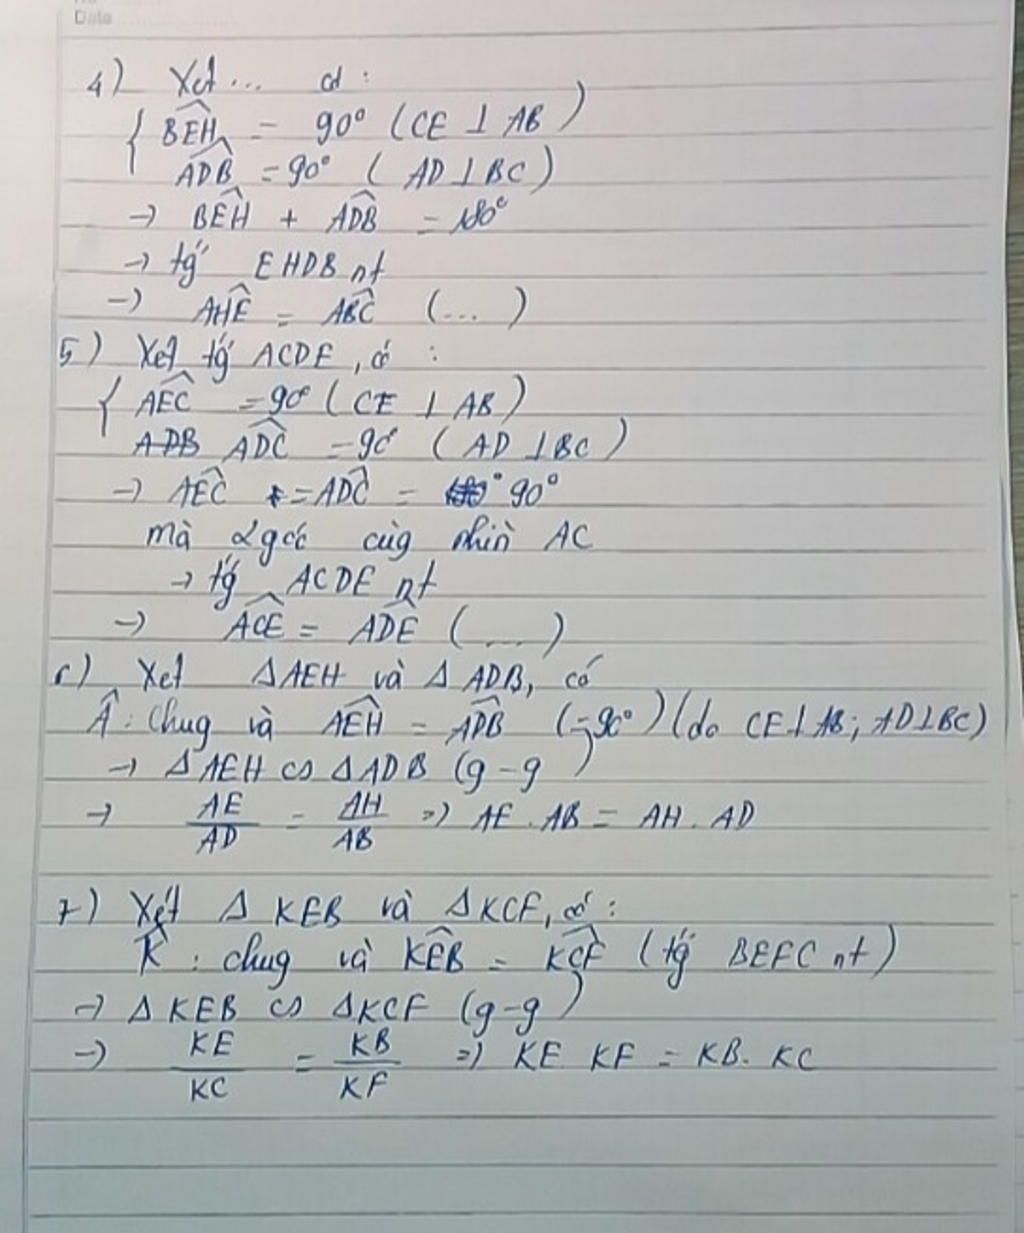 Date
4) Xét ... có :
{ BEĤ = 90° (CE ⊥ AB)
ADB̂ = 90° ( AD ⊥ BC )
→ BÊH + AD̂B = 180°
→ tg' EHDB nt
→ AHÊ = AB̂C (...)
5) Xét tứ ACDE, có :
{ AÊC = 90° ( CE ⊥ AB )
ADB AD̂C = 90° ( AD ⊥ BC )
→ AÊC = AD̂C = 90°
mà 2 góc cùg nhìn AC
→ tứ ACDE nt
→ AĈE = AD̂E (...)
6) Xét ΔAEH và Δ ADB, có
Â : Chug và AÊH = AD̂B (=90°) (do CE⊥AB; AD⊥BC)
→ ΔAEH ∽ ΔADB (g-g)
→ AE/AD = AH/AB => AE . AB = AH . AD
7) Xét Δ KEB và ΔKCF, có :
K̂ : chug và KÊB = KĈF (tứ BEFC nt)
→ Δ KEB ∽ ΔKCF (g-g)
→ KE/KC = KB/KF => KE KF = KB. KC